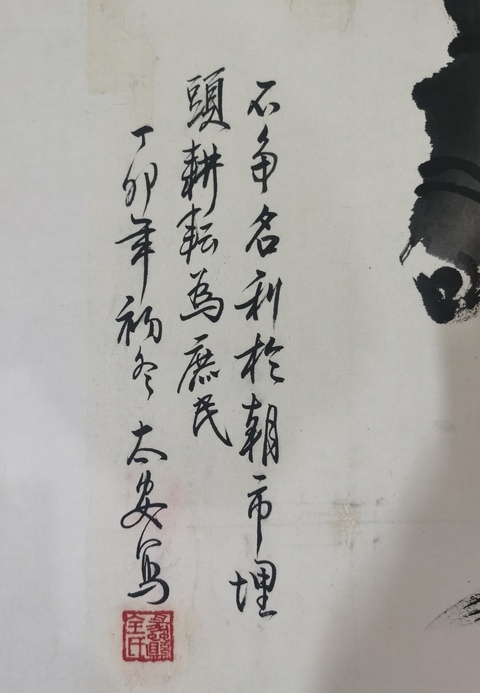 不争名利於朝市埋
頭耕耘為庶民
丁卯年初冬 太安写